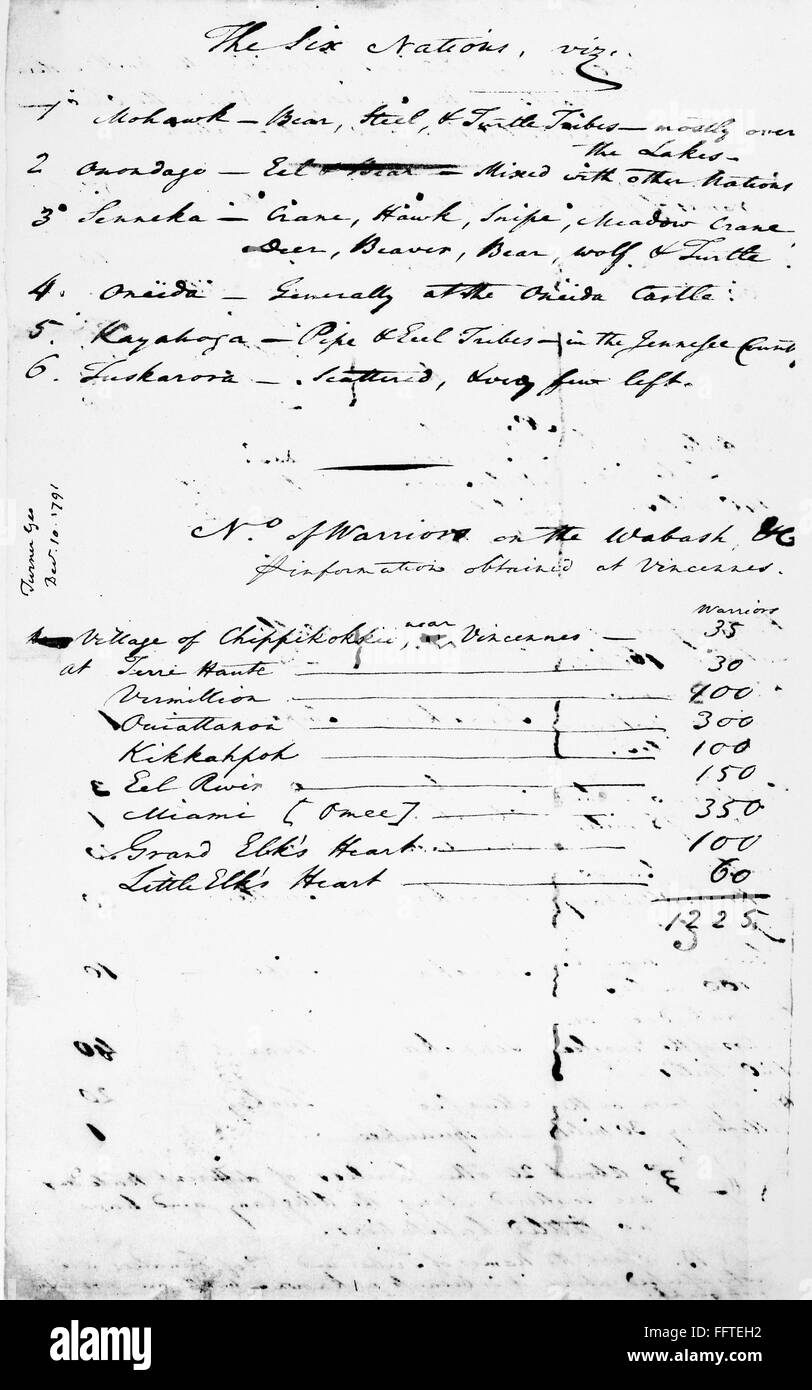 The Six Nations, viz.
1° Mohawk — Bear, Steel, & Turtle Tribes — mostly over
the Lakes —
2 Onondago — Eel & Bear — Mixed with other Nations
3° Senneka — Crane, Hawk, Snipe, Meadow Crane
Deer, Beaver, Bear, wolf & Turtle.
4. Oneida — Generally at the Oneida Castle.
5. Kayahoga — Pipe & Eel Tribes — in the Jennesee
6. Tuskarora — Scattered, & very few left.
Turner Geo
Dec. 10. 1791
No. of Warriors on the Wabash &c
information obtained at Vincennes.
Warriors
Village of Chippikokkie, near Vincennes — 35
at Terre Haute — 30
Vermillion — 100
Ouiattanon — 300
Kikkahpoh — 100
Eel River — 150
Miami [Omee] — 350
Grand Elk's Heart — 100
Little Elk's Heart — 60
1225
alamy
Image ID: FFTEH2
www.alamy.com